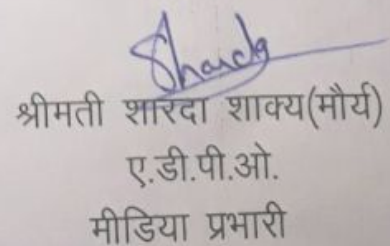 Sharda
श्रीमती शारदा शाक्य(मौर्य)
ए.डी.पी.ओ.
मीडिया प्रभारी